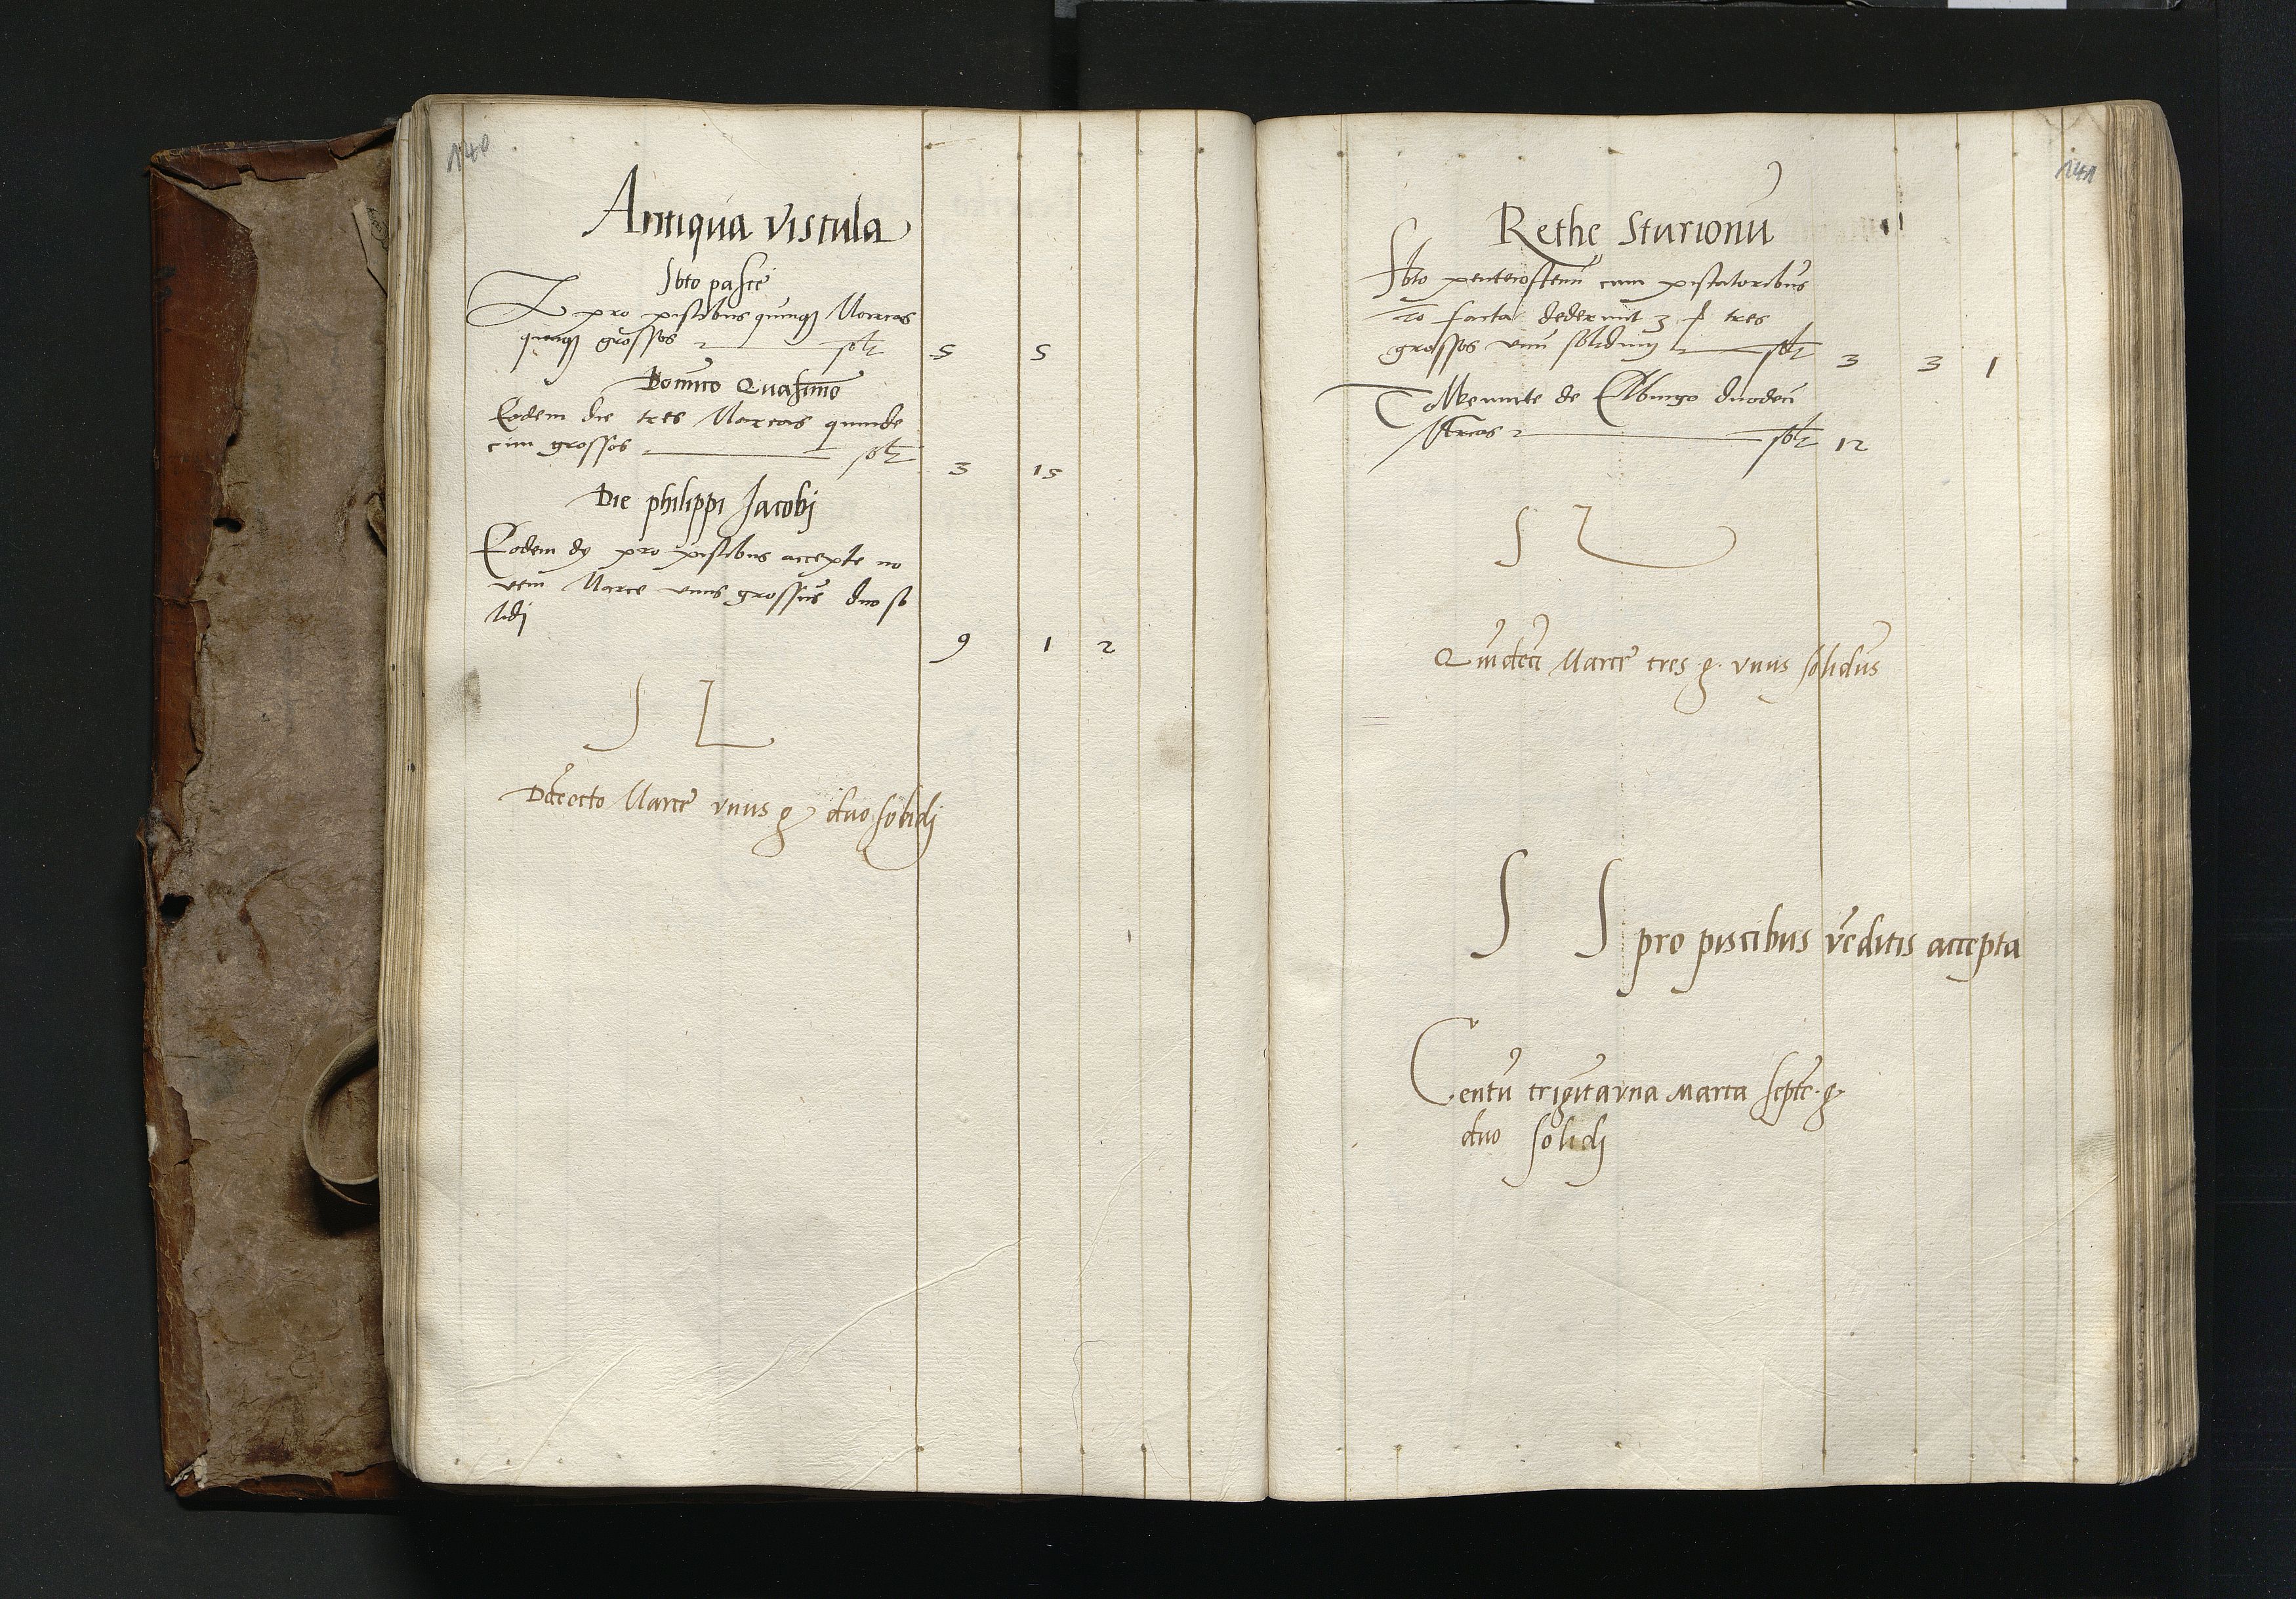 140
Antiqua Vistula
Sbto pasce
pro piscibus quinqz Marcas
quinqz grossos solt 5 5
Domico Quasimo
Eodem die tres Marcas quinde
cim grossos solt 3 15
Die philippi Jacobj
Eodem dy pro piscibus accepte no
vem Marce unus grossus duo so
lidj
9 1 2
S L
Decocto Marce vnus g duo solidj
141
Rethe Sturionu
Sbto pentecostenu cum piscatoribus
facta dederunt 3 f tres
grossos vnu solidum solt 3 3 1
de Elbingo duodeci
Mrcas solt 12
S L
Quideci Marce tres g. vnus solidus
S S pro piscibus veditis accepta
Centu trigitavna marca septe. g.
duo solidj